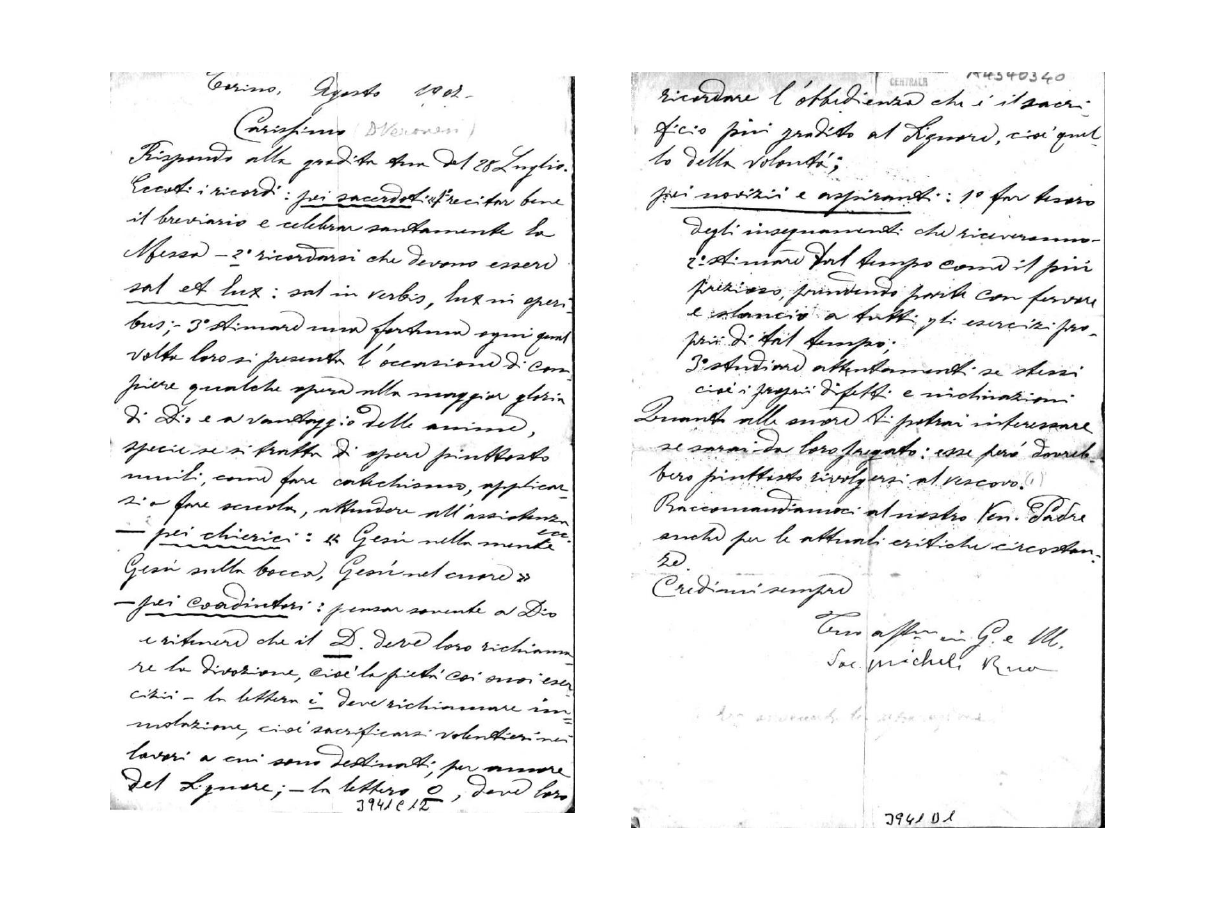 Torino, Agosto 1902-
Carissimo (D Veronesi)
Rispondo alla gradita tua del 28 Luglio.
Eccoti i ricordi: pei sacerdoti: 1° recitar bene
il breviario e celebrar santamente la
Messa - 2° ricordarsi che devono essere
sal et lux: sal in verbis, lux in operi-
bus; - 3° stimare una fortuna ogni qual
volta loro si presenta l'occasione di com-
piere qualche opera alla maggior gloria
di Dio e a vantaggio delle anime,
specie se si tratta di opere piuttosto
umili, come fare catechismo, applicar-
si a fare scuola, attendere all'assistenza
ecc.
- pei chierici: « Gesù nella mente
Gesù sulla bocca, Gesù nel cuore »
- pei coadiutori: pensar sovente a Dio
e ritenere che il D. deve loro richiama-
re la divozione, cioè la pietà coi suoi eser-
cizii - la lettera i deve richiamare im-
molazione, cioè sacrificarsi volentieri nei
lavori a cui sono destinati, per amore
del Signore; - la lettera o, deve loro
3941 C 12
CENTRALE
A4540340
ricordare l'obbedienza che è il sacri-
ficio più gradito al Signore, cioè quel-
lo della volontà;
pei novizii e aspiranti: 1° far tesoro
degli insegnamenti che riceveranno-
2° stimare tal tempo come il più
prezioso, prendendo parte con fervore
e slancio a tutti gli esercizi pro-
prii di tal tempo;
3° studiare attentamenti se stessi
cioè i proprii difetti e inclinazioni
Quanto alle suore ti potrai interessare
se sarai da loro pregato: esse però dovreb-
bero piuttosto rivolgersi al vescovo. (1)
Raccomandiamoci al nostro Ven. Padre
anche per le attuali critiche circostan-
ze.
Credimi sempre
Tuo aff.mo in G. e M.
Sac. Michele Rua
3941 D 1